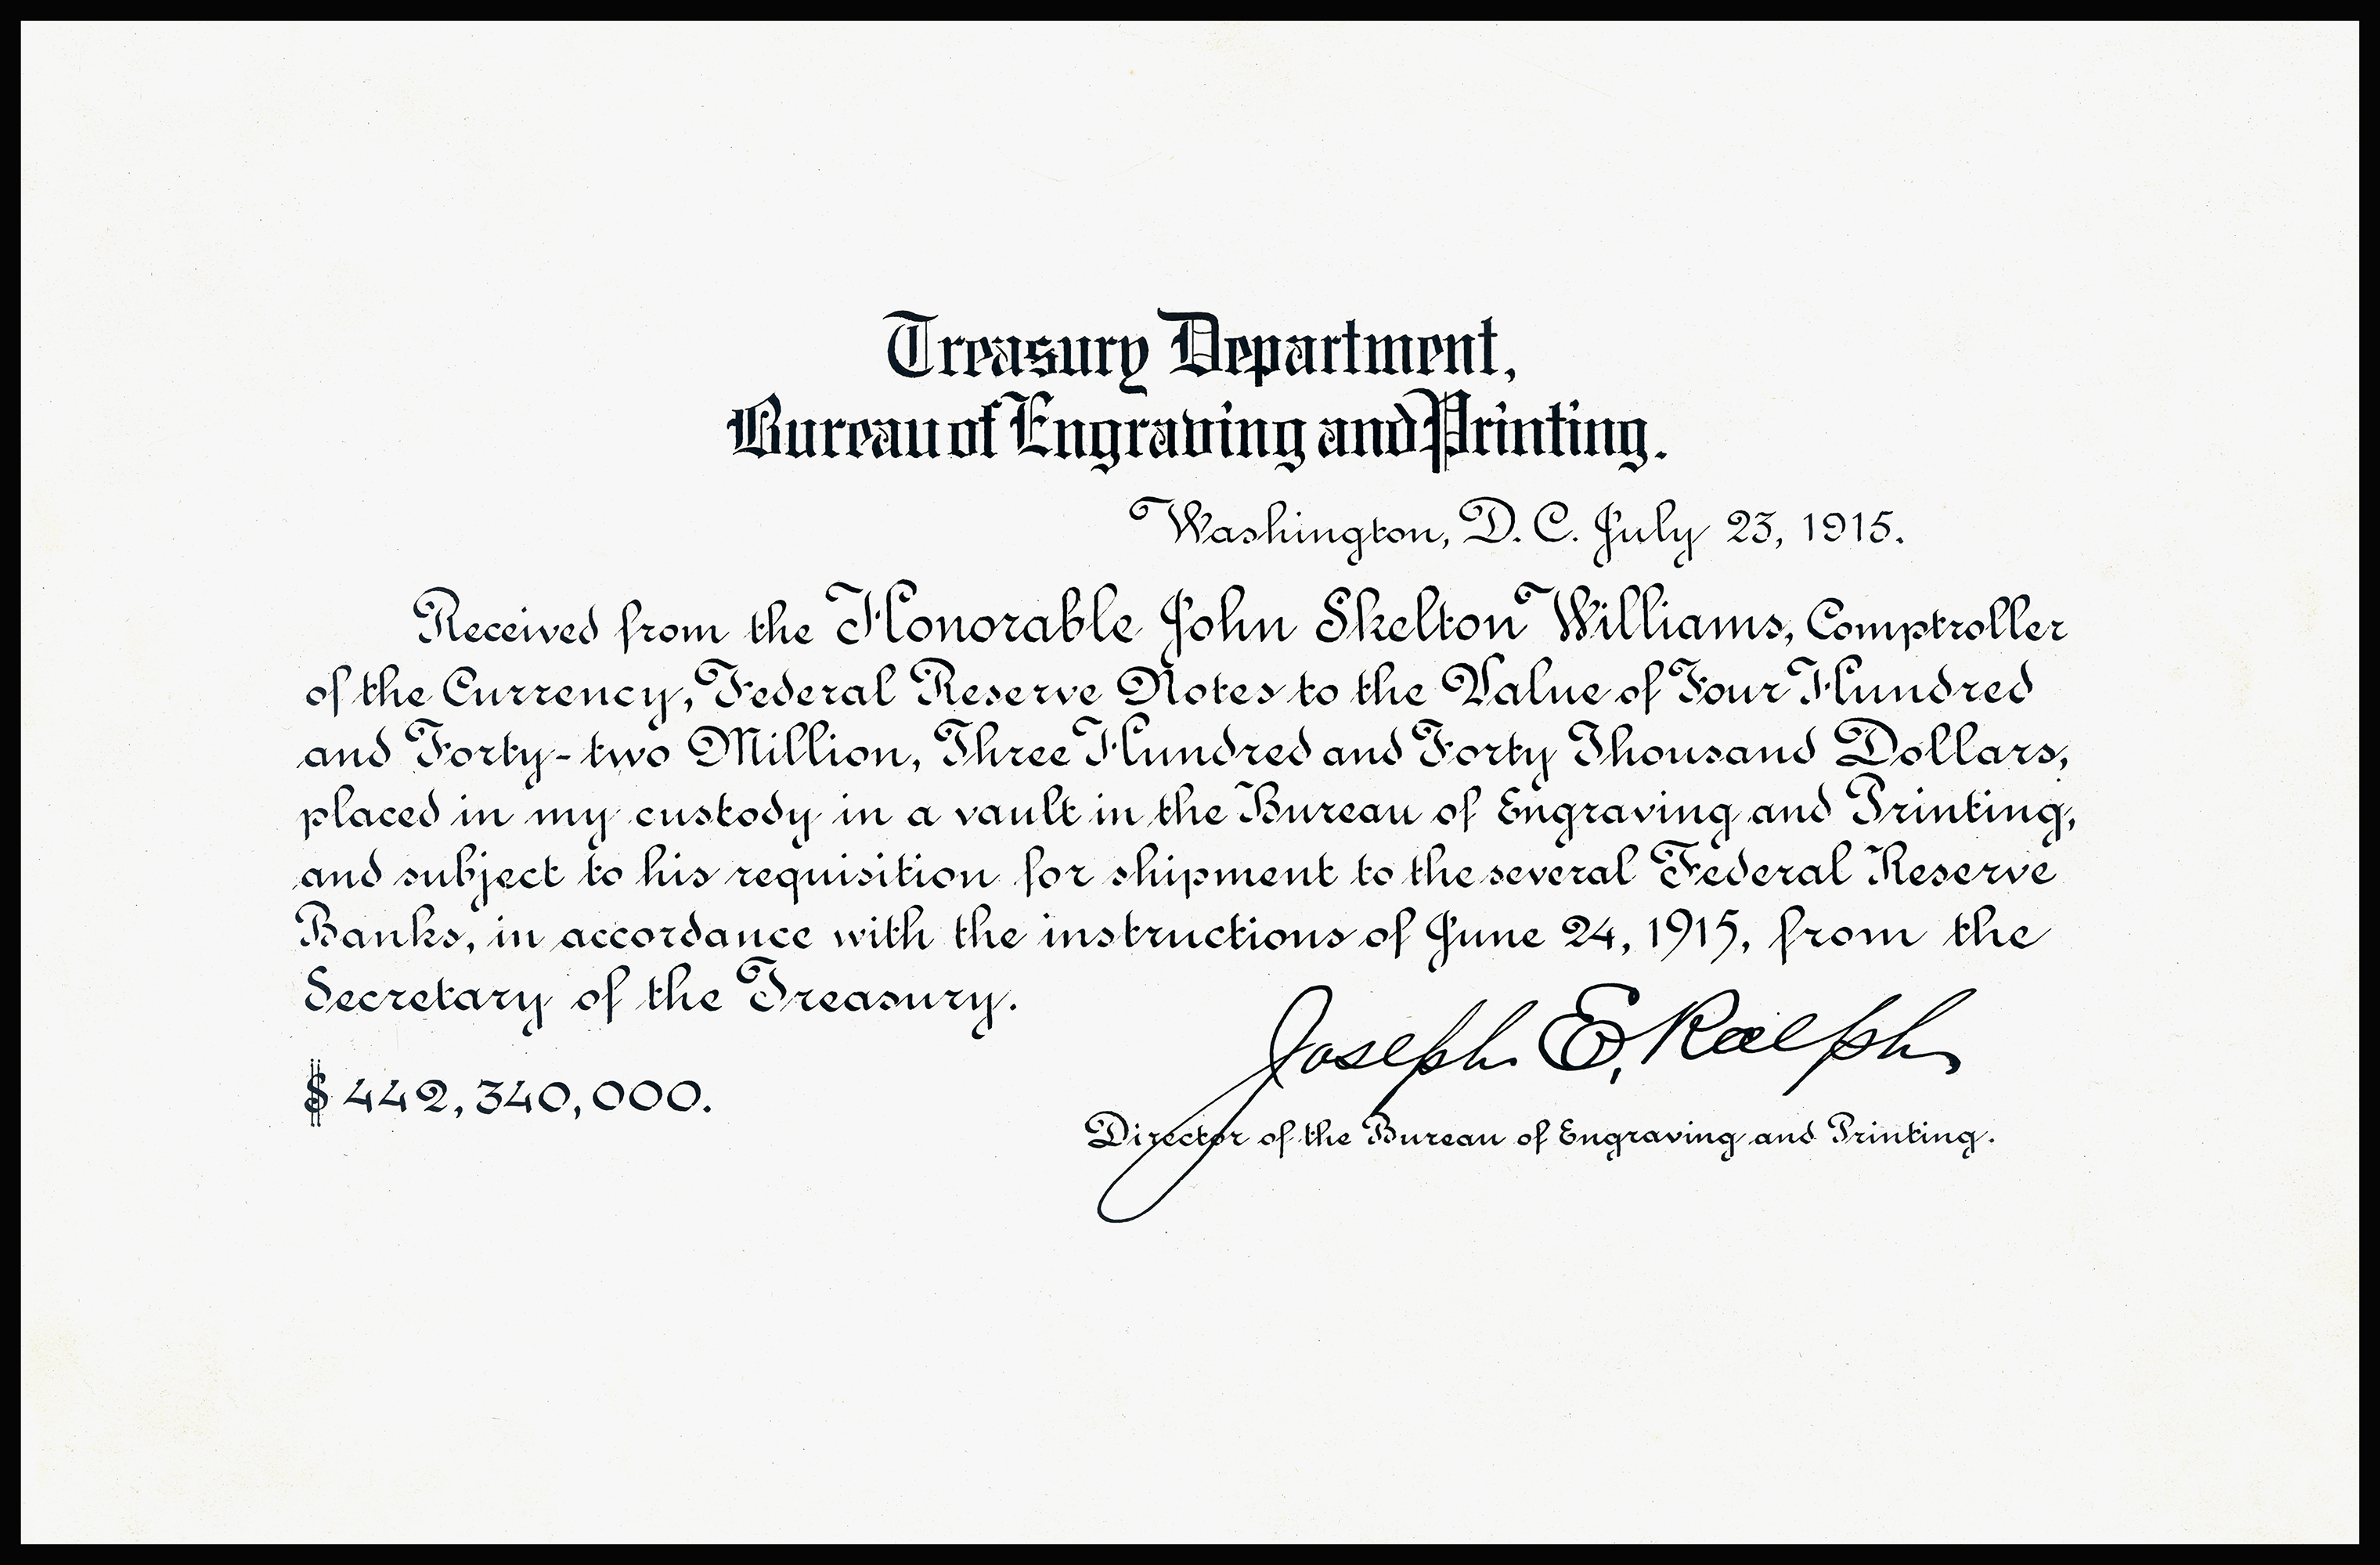 Treasury Department,
Bureau of Engraving and Printing.
Washington, D. C. July 23, 1915.
Received from the Honorable John Skelton Williams, Comptroller
of the Currency, Federal Reserve Notes to the Value of Four Hundred
and Forty-two Million, Three Hundred and Forty Thousand Dollars,
placed in my custody in a vault in the Bureau of Engraving and Printing,
and subject to his requisition for shipment to the several Federal Reserve
Banks, in accordance with the instructions of June 24, 1915, from the
Secretary of the Treasury.
Joseph E. Ralph
$442,340,000.
Director of the Bureau of Engraving and Printing.